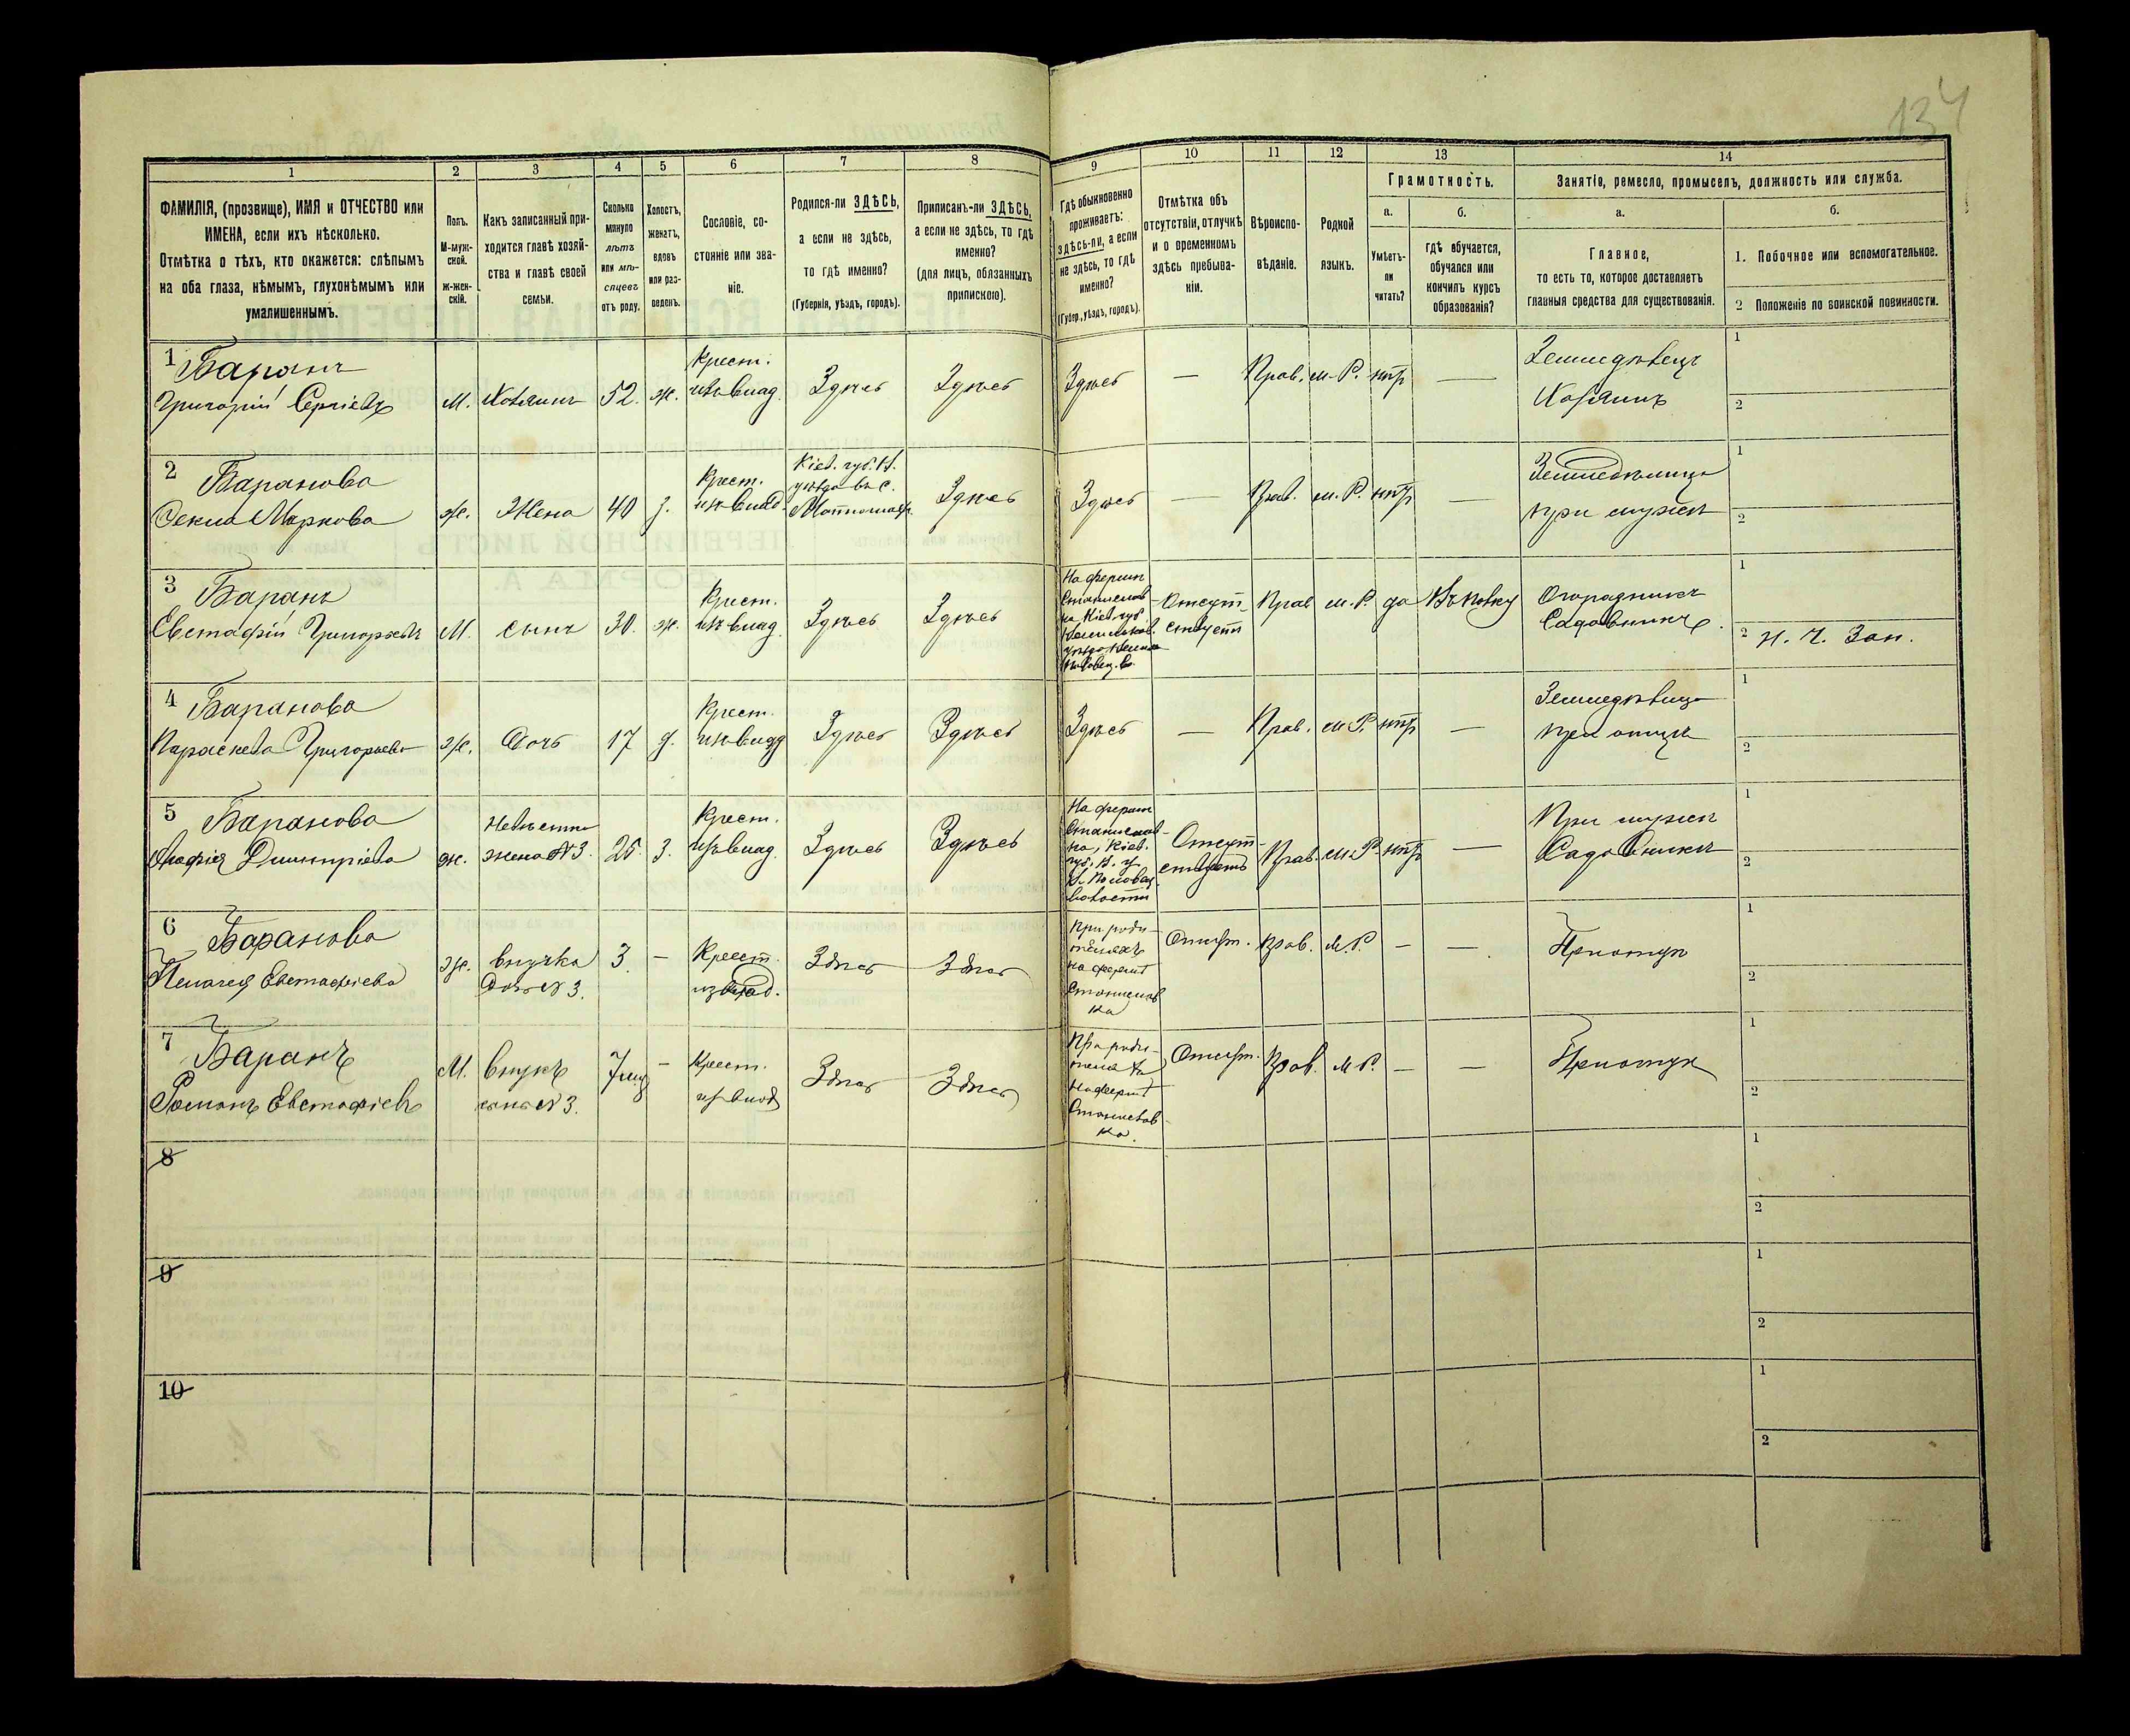 134
1
2
3
4
5
6
7
8
9
10
11
12
13
14
ФАМИЛІЯ, (прозвище), ИМЯ и ОТЧЕСТВО или
ИМЕНА, если ихъ нѣсколько.
Отмѣтка о тѣхъ, кто окажется: слѣпымъ
на оба глаза, нѣмымъ, глухонѣмымъ или
умалишеннымъ.
Полъ.
М-муж-
ской.
ж-жен-
скій.
Какъ записанный при-
ходится главѣ хозяй-
ства и главѣ своей
семьи.
Сколько
минуло
лѣтъ
или мѣ-
сяцевъ
отъ роду.
Холостъ,
женатъ,
вдовъ
или раз-
веденъ.
Сословіе, со-
стояніе или зва-
ніе.
Родился-ли ЗДѢСЬ,
а если не здѣсь,
то гдѣ именно?
(Губернія, уѣздъ, городъ).
Приписанъ-ли ЗДѢСЬ,
а если не здѣсь, то гдѣ
именно?
(для лицъ, обязанныхъ
припискою).
Гдѣ обыкновенно
проживаетъ:
здѣсь-ли, а если
не здѣсь, то гдѣ
именно?
(Губер., уѣздъ, городъ).
Отмѣтка объ
отсутствіи, отлучкѣ
и о временномъ
здѣсь пребыва-
ніи.
Вѣроиспо-
вѣданіе.
Родной
языкъ.
Грамотность.
а.
Умѣетъ-
ли
читать?
б.
гдѣ обучается,
обучался или
кончилъ курсъ
образованія?
Занятіе, ремесло, промыселъ, должность или служба.
а.
Главное,
то есть то, которое доставляетъ
главныя средства для существованія.
б.
1. Побочное или вспомогательное.
2 Положеніе по воинской повинности.
1 Баранъ
Григорій Сергіевъ
М.
Хозяинъ
52.
ж.
Крест.
изъ влад.
Здѣсь
Здѣсь
Здѣсь
—
Прав.
м. Р.
нтъ
—
Земледѣлецъ
Хозяинъ
1
2
2 Баранова
Маркова
ж.
Жена
40
з.
Крест.
изъ влад.
Кіев. губ. К.
уѣзда въ с.
Здѣсь
Здѣсь
—
Прав.
м. Р.
нтъ
—
при мужѣ
1
2
3 Баранъ
Евстафій Григорьевъ
М.
сынъ
30.
ж.
Крест.
изъ влад.
Здѣсь
Здѣсь
На фермѣ
Станислав-
ка Кіев. губ.
Отсут-
ствуетъ
Прав
м. Р.
да
Огородникъ
Садовникъ.
1
2 н. ч. Зап.
4 Баранова
Параскева Григорьева
ж.
Дочь
17
д.
Крест.
изъ влад
Здѣсь
Здѣсь
Здѣсь
—
Прав.
м. Р.
нтъ
—
при отцѣ
1
2
5 Баранова
Димитріева
ж.
Невѣстка
жена №3.
25
з.
Крест.
изъ влад.
Здѣсь
Здѣсь
На фермѣ
Станислав-
ка, Кіев.
губ, К. у.
волости
Отсут-
ствуетъ
Прав.
м. Р.
нтъ
—
При мужѣ
Садовникѣ
1
2
6 Баранова
Пелагея Евстафіева
ж.
внучка
Дочь №3.
3
—
Крест.
изъ влад.
Здѣсь
Здѣсь
При роди-
теляхъ
на фермѣ
Станислав
ка
Отсут.
Прав.
М. Р.
—
—
При отцѣ
1
2
7 Баранъ
Романъ Евстафіевъ
М.
внукъ
сынъ №3.
7 мц
—
Крест.
изъ влад
Здѣсь
Здѣсь
При роди-
теляхъ
на фермѣ
Станислав-
ка.
Отсут.
Прав.
М. Р.
—
—
При отцѣ
1
2
8
1
2
9
1
2
10
1
2